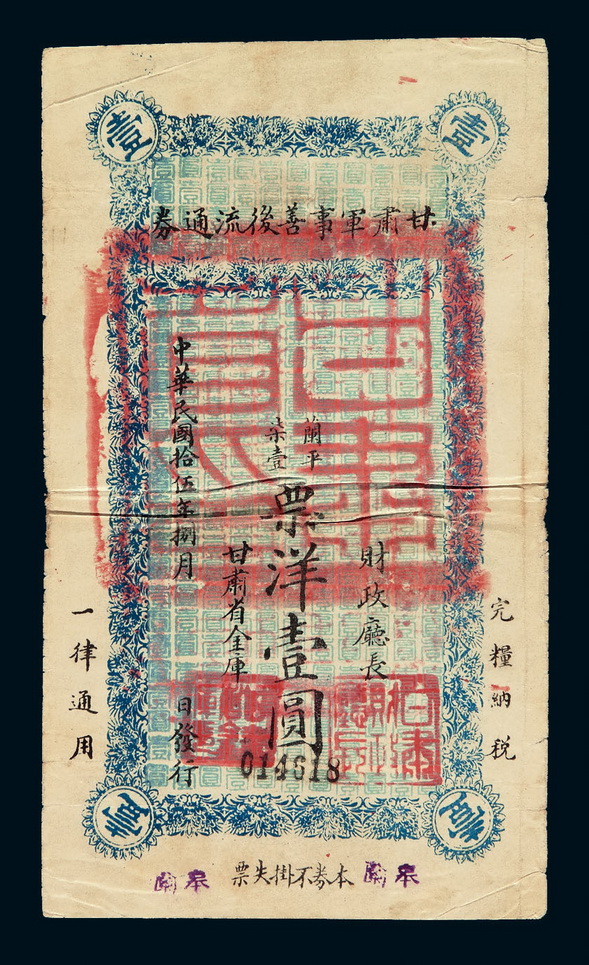 壹 壹
甘肅軍事善後流通券
完糧納稅
財政廳長
蘭平
柒壹
票洋壹圓
甘肅省金庫
中華民國拾伍年捌月 日發行
一律通用
014618
壹 壹
本券不掛失票